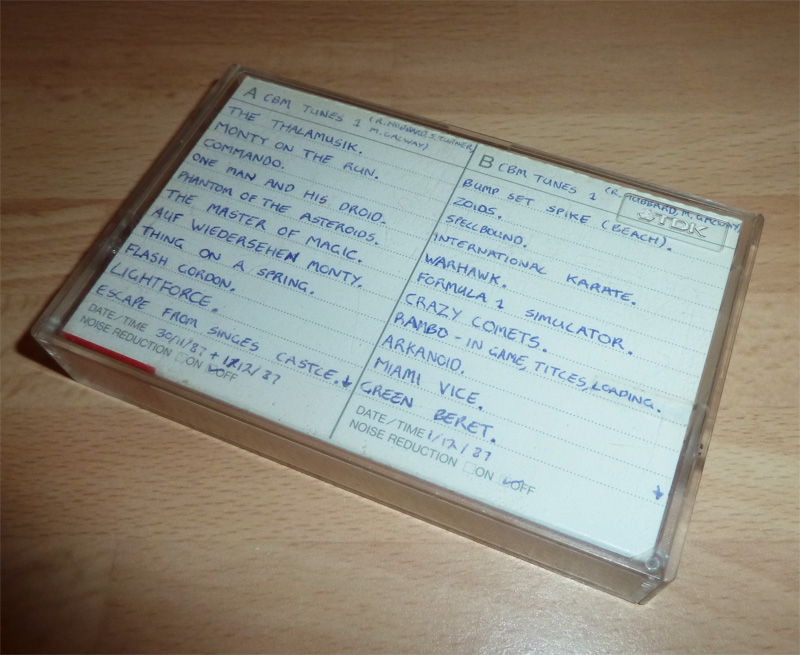 A CBM TUNES 1 (R. HUBBARD, S. TURNER
M. GALWAY)
THE THALAMUSIK.
MONTY ON THE RUN.
COMMANDO.
ONE MAN AND HIS DROID.
PHANTOM OF THE ASTEROIDS.
THE MASTER OF MAGIC.
AUF WIEDERSEHEN MONTY.
THING ON A SPRING.
FLASH GORDON.
LIGHTFORCE.
ESCAPE FROM SINGES CASTLE.
DATE/TIME 30/11/87 + 1/12/87
NOISE REDUCTION ON OFF
B CBM TUNES 1 (R. HUBBARD, M. GALWAY)
TDK
BUMP SET SPIKE (BEACH).
ZOIDS.
SPELLBOUND.
INTERNATIONAL KARATE.
WARHAWK.
FORMULA 1 SIMULATOR.
CRAZY COMETS.
RAMBO - IN GAME, TITLES, LOADING.
ARKANOID.
MIAMI VICE.
GREEN BERET.
DATE/TIME 1/12/87
NOISE REDUCTION ON OFF